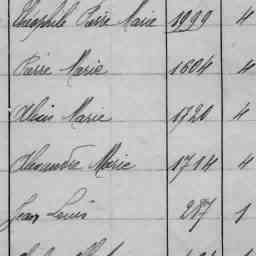 Théophile Pierre Marie 1999 4
Pierre Marie 1804 4
Alexis Marie 1720 4
Alexandre Marie 1714 4
Jean Louis 287 1